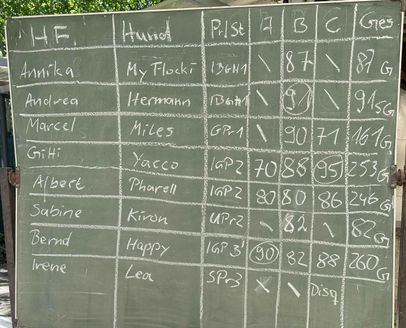 H.F. Hund Pr/St A B C Ges
Annika My Flocki IBGH1 \ 87 \ 87 G
Andrea Hermann IBGH1 \ 91 \ 91 SG
Marcel Miles GPr1 \ 90 71 161 G
Gitti Yacco IGP2 70 88 95 253 G
Albert Pharell IGP2 80 80 86 246 G
Sabine Kiron UPr2 \ 82 \ 82 G
Bernd Happy IGP3 90 82 88 260 G
Irene Lea SPr3 X \ Disq